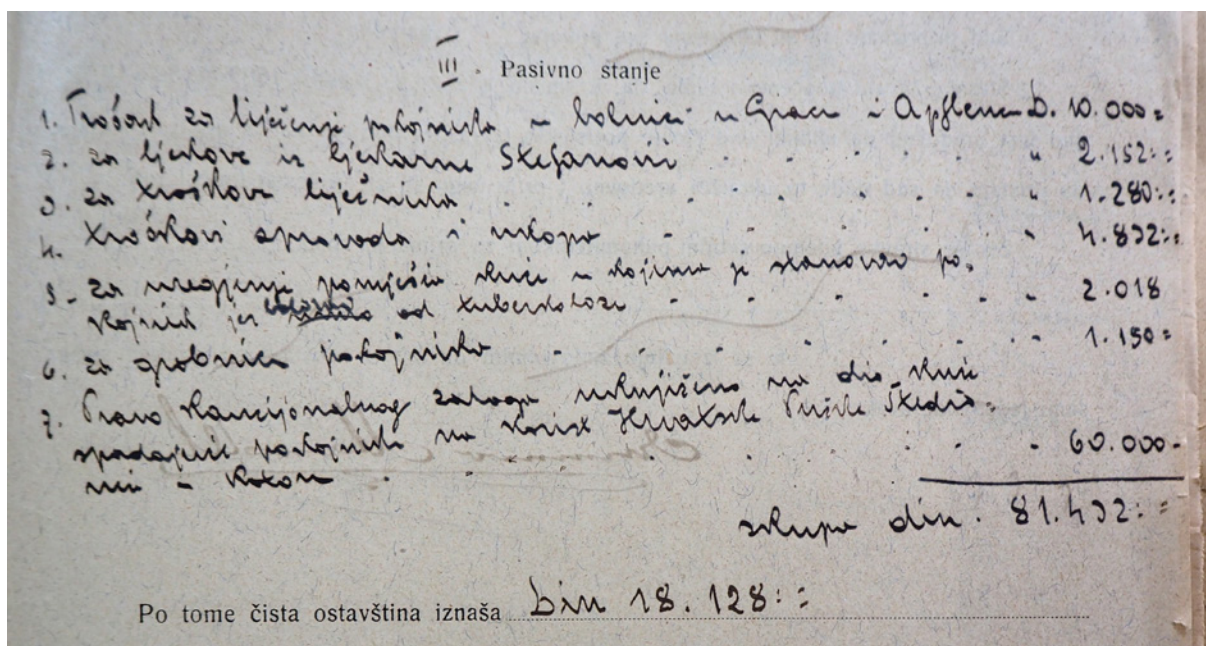 III. Pasivno stanje
1. Trošak za liječenje pokojnika u bolnici u Gracu i Apflenu D. 10.000=
2. za ljekove iz ljekarne Stefanović " 2.152:=
3. za troškove liječnika " 1.280:=
4. troškovi sprovoda i ukopa " 4.832:=
5. za uregjenje pomješća kuće u kojima je stanovao po-
kojnik jer od tuberkoloze " 2.018
6. za grobnicu pokojnika " 1.150=
7. Pravo kaucijonalnog zaloga uknjiženo na dio kuće
spadajući pokojniku na korist Hrvatske Pučke Štedio-
nice u Kotoru " 60.000-
skupa din. 81.432:=
Po tome čista ostavština iznaša Din 18.128:=